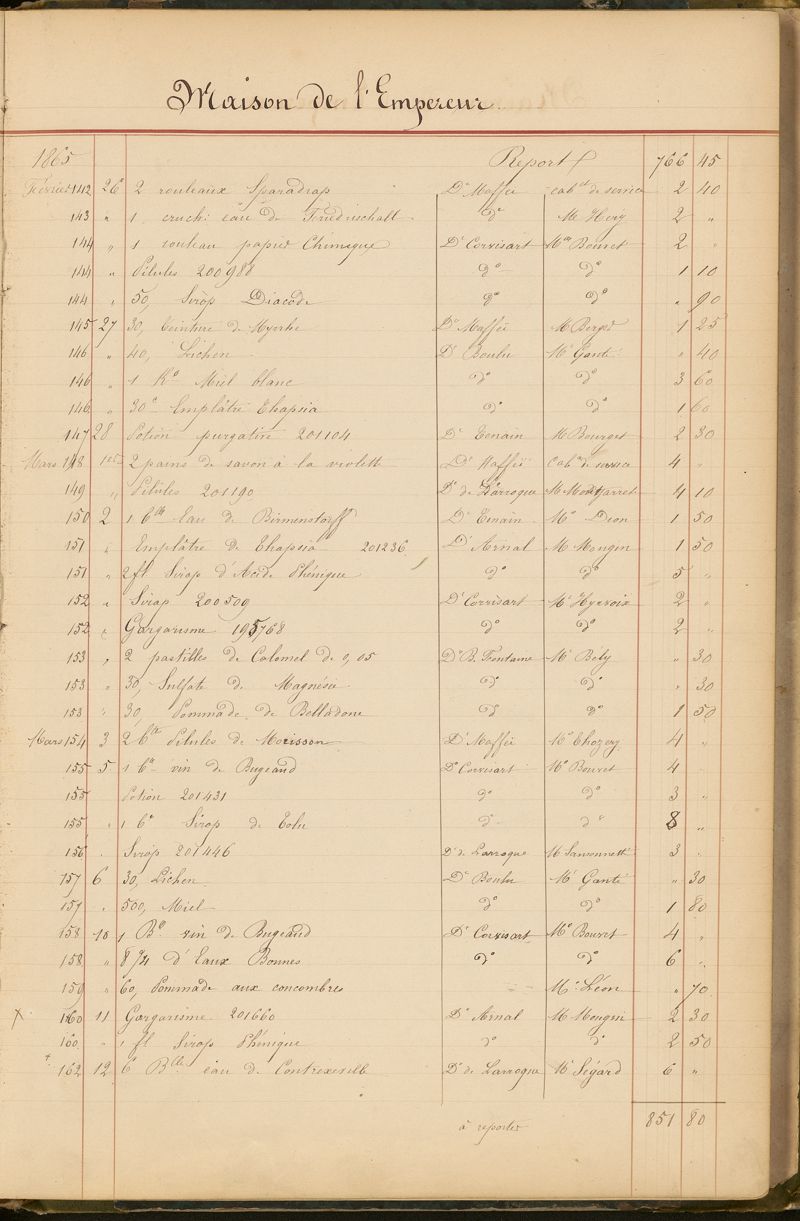 Maison de l'Empereur
1865 Report 766 45
Février 142 26 2 rouleaux Sparadrap Dr Maffei cabet de service 2 40
143 " 1 cruch: eau de Friedrischall do M Héry 2 "
144 " 1 rouleau papier Chimique Dr Corvisart Me Bouvet 2 "
144 " Pilules 200988 do do 1 10
144 " 50, Sirop Diacode do do " 90
145 27 30, teinture de Myrrhe Dr Maffei M 1 25
146 " 40, Lichen Dr Boulu Mr Ganté " 40
146 " 1 Ko Miel blanc do do 3 60
146 " 30c Emplâtre Thapsia do do 1 60
147 28 Potion purgative 201104 Dr Tenain M Bourget 2 30
Mars 148 1er 2 pains de savon à la violette Dr Maffei Cabt de service 4 "
149 " Pilules 201190 Dr de Larroque M 4 10
150 2 1 blle Eau de Birmenstorff Dr Tenain Mr Dion 1 50
151 " Emplâtre de Thapsia 201236 Dr Arnal M Mougin 1 50
151 " 2 fl Sirop d'Acide Phénique do do 5 "
152 " Sirop 200509 Dr Corvisart Mr Hyrvoix 2 "
152 " Gargarisme 195768 do do 2 "
153 " 2 pastilles de Calomel de 0,05 Dr B. Fontaine Mr Bély " 30
153 " 30, Sulfate de Magnésie do do " 30
153 " 30, Pommade de Belladone do do 1 50
Mars 154 3 2 btes Pilules de Morisson Dr Maffei Mr 4 "
155 5 1 bll vin de Bugeaud Dr Corvisart Me Bouvet 4 "
155 Potion 201431 do do 3 "
155 " 1 bo Sirop de Tolu do do 8 "
156 " Sirop 201446 Dr de Larroque M Sansonnetti 3 "
157 6 30, Lichen Dr Boulu Mr Ganté " 30
157 " 500, Miel do do 1 80
158 10 1 Blle vin de Bugeaud Dr Corvisart Me Bouvet 4 "
158 " 8 1/4 d'Eaux Bonnes do do 6 "
159 " 60, Pommade aux concombres Mr Léon " 70
x 160 11 Gargarisme 201660 Dr Arnal M Mougin 2 30
160 " 1 fl Sirop Phénique do do 2 50
+ 162 12 6 Blle eau de Contrexeville Dr de Larroque Mr Ségard 6 "
à reporter 851 80